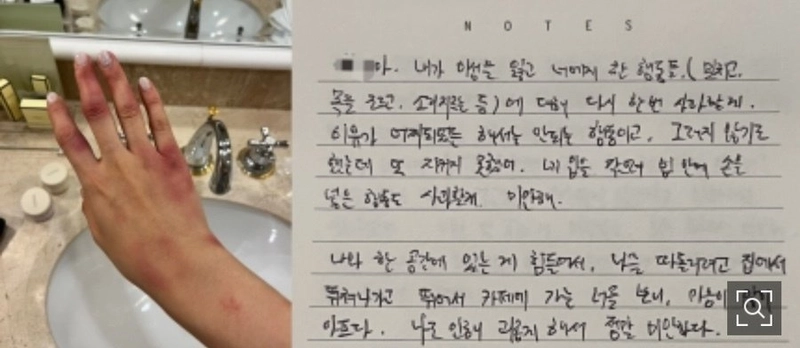 NOTES
아. 내가 이성을 잃고 너에게 한 행동들. (밀치고,
목을 조르고, 소리지르는 등)에 대해 다시 한번 사과할게.
이유가 어찌되었든 해서는 안되는 행동이고, 그러지 않기로
했는데 또 지키지 못했어. 네 입을 막으려 입 안에 손을
넣은 행동도 사과할게. 미안해.
나와 한 공간에 있는 게 힘들어서, 낙을 따돌리려고 집에서
뛰쳐나가고 뛰어서 카페에 가는 너를 보니, 마음이
아프다. 나로 인해 괴롭게 해서 정말 미안하다.